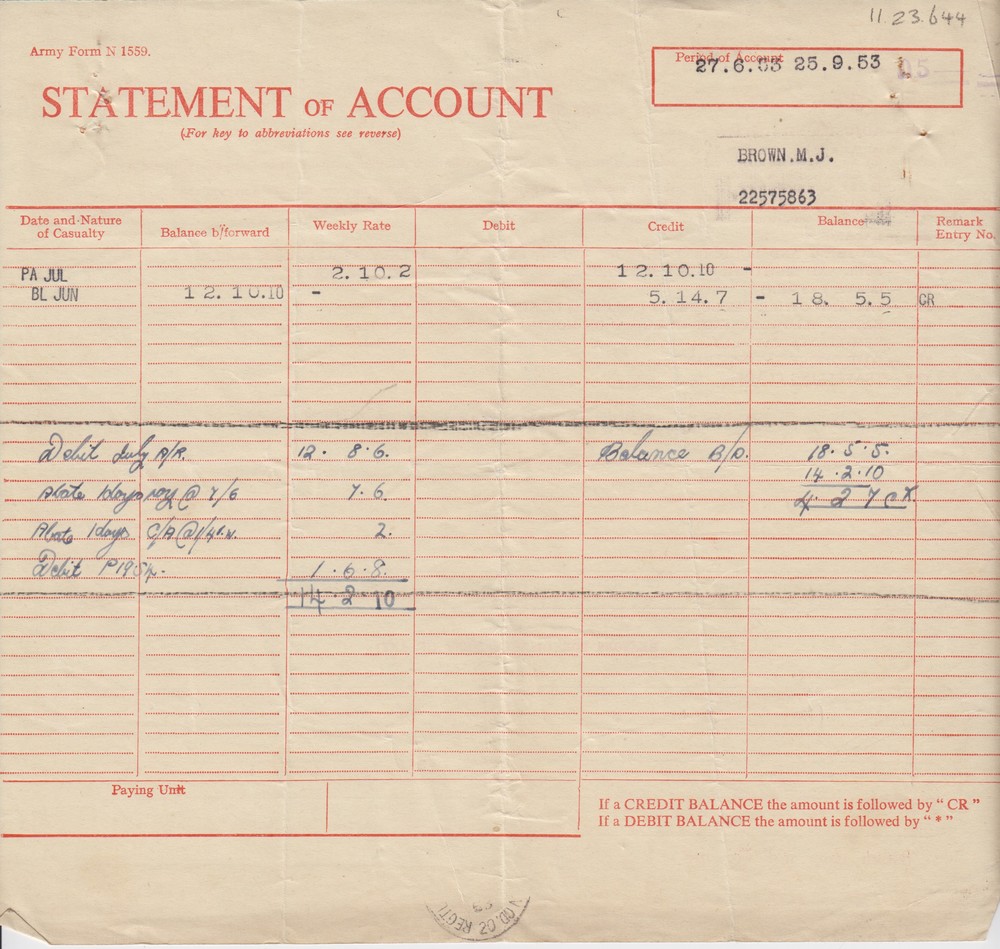 11.23.644
Army Form N 1559.
Period of Account
27.6.53 25.9.53
STATEMENT OF ACCOUNT
(For key to abbreviations see reverse)
BROWN.M.J.
22575863
Date and Nature of Casualty Balance b/forward Weekly Rate Debit Credit Balance Remark Entry No.
PA JUL 2.10.2 12.10.10 -
BL JUN 12.10.10 - 5.14.7 - 18. 5.5 CR
Debit July A/R. 12. 8.6. Balance B/D. 18.5.5.
14.2.10
Abate 1days @ 7/6 7.6. 4. 2 7 CR.
Abate 1days C/A @ 2.
Debit 1.6.8.
14.2.10
Paying Unit
If a CREDIT BALANCE the amount is followed by “ CR ”
If a DEBIT BALANCE the amount is followed by “ * ”